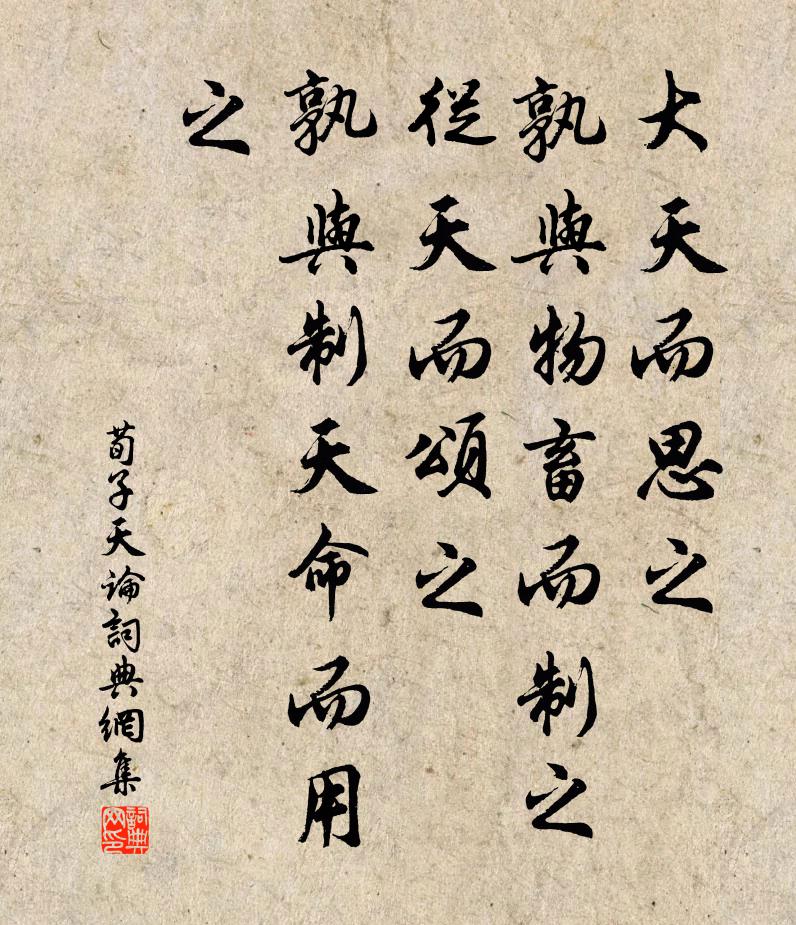 大天而思之
孰與物畜而制之
從天而頌之
孰與制天命而用
之
荀子天論詞典網集
詞典网印